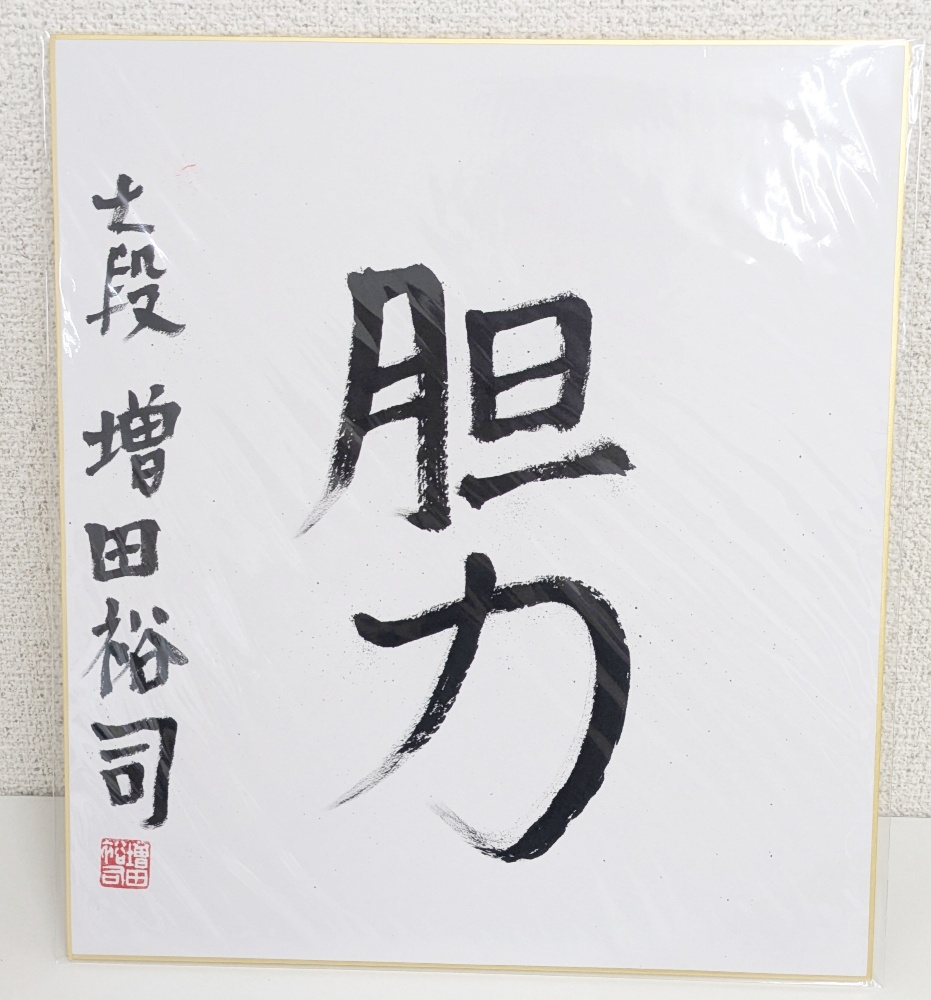 胆力
七段 増田裕司
増田裕司